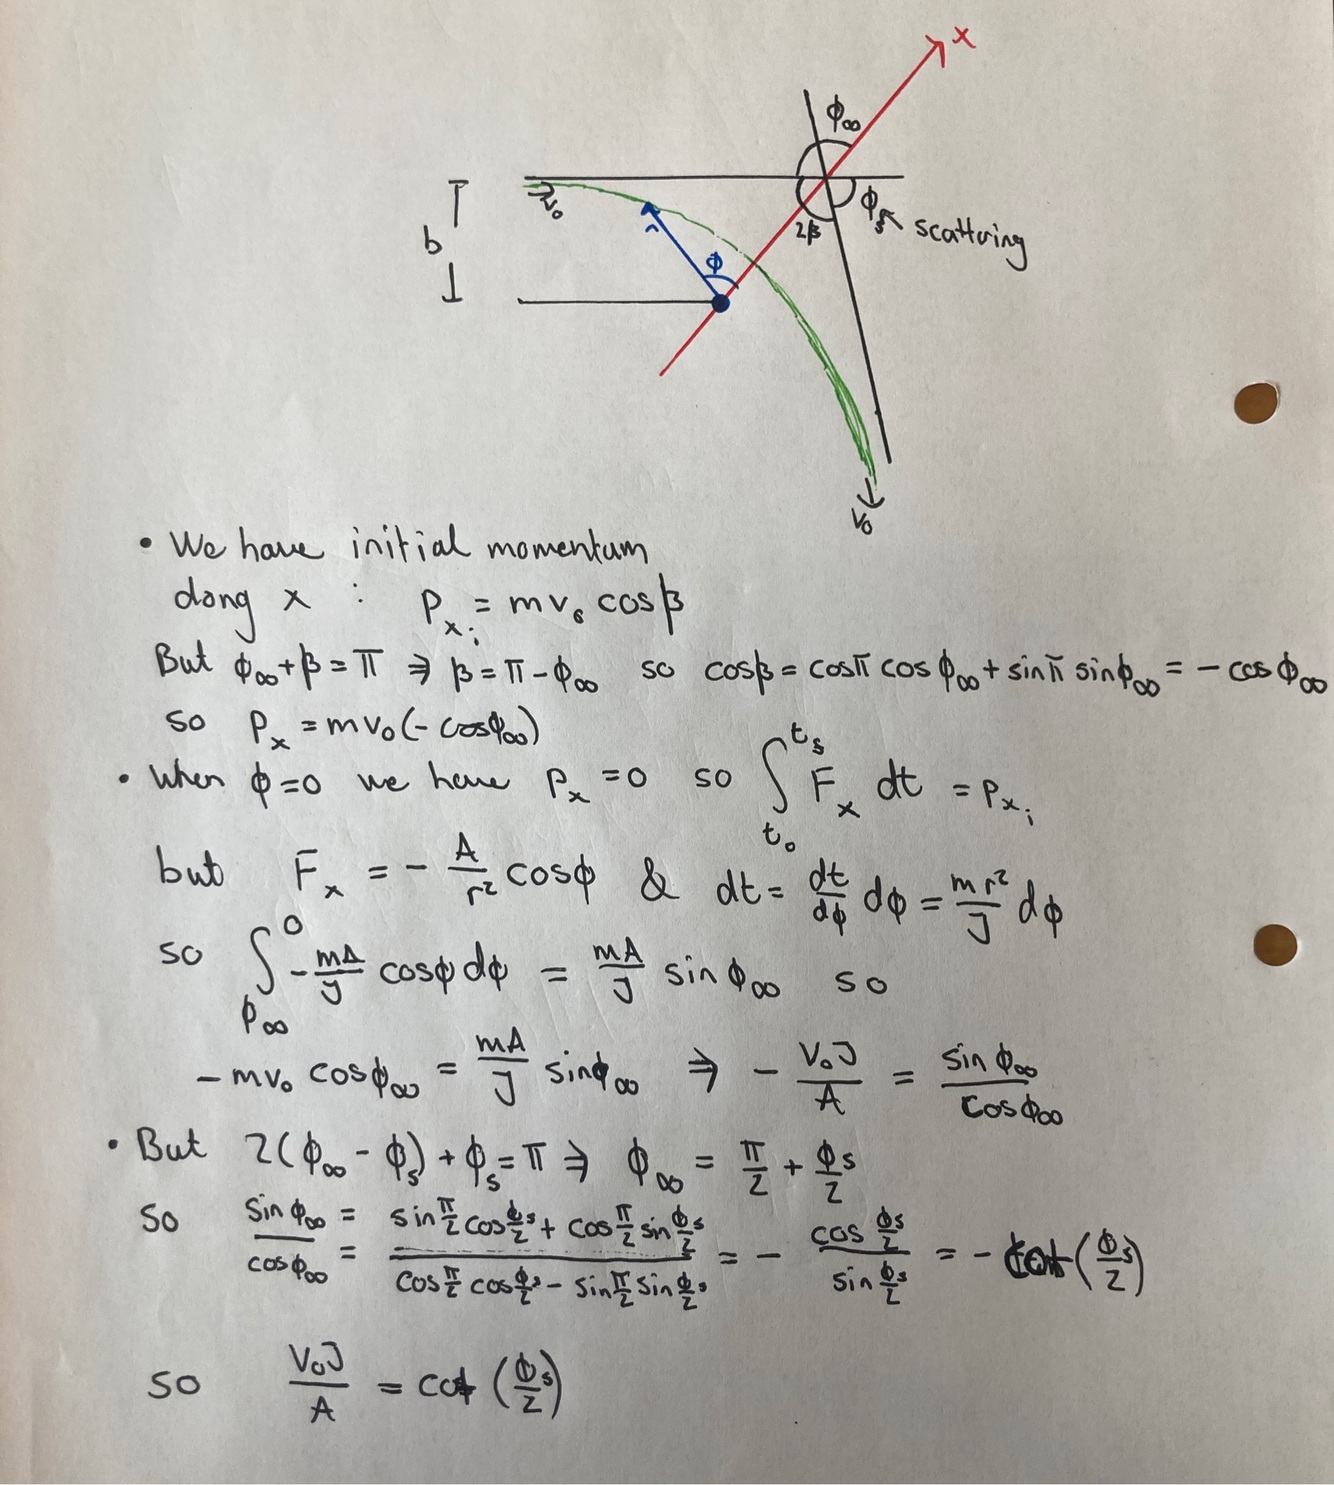 x
ϕ∞
v₀
b
r
ϕ
2β
ϕs
scattering
v₀
• We have initial momentum
along x : P_{x_i} = m v₀ cos β
But ϕ∞ + β = π ⇒ β = π - ϕ∞ so cos β = cos π cos ϕ∞ + sin π sin ϕ∞ = - cos ϕ∞
so P_x = m v₀ (- cos ϕ∞)
• When ϕ = 0 we have P_x = 0 so ∫_{t₀}^{t_s} F_x dt = P_{x_i}
but F_x = - A/r² cos ϕ & dt = dt/dϕ dϕ = m r²/J dϕ
so ∫_{ϕ∞}^{0} - mA/J cos ϕ dϕ = mA/J sin ϕ∞ so
- m v₀ cos ϕ∞ = mA/J sin ϕ∞ ⇒ - V₀J/A = sin ϕ∞/cos ϕ∞
• But 2(ϕ∞ - ϕs) + ϕs = π ⇒ ϕ∞ = π/2 + ϕs/2
so sin ϕ∞/cos ϕ∞ = = (sin π/2 cos ϕs/2 + cos π/2 sin ϕs/2)/(cos π/2 cos ϕs/2 - sin π/2 sin ϕs/2) = - cos ϕs/2 / sin ϕs/2 = - cot(ϕs/2)
so V₀J/A = cot(ϕs/2)